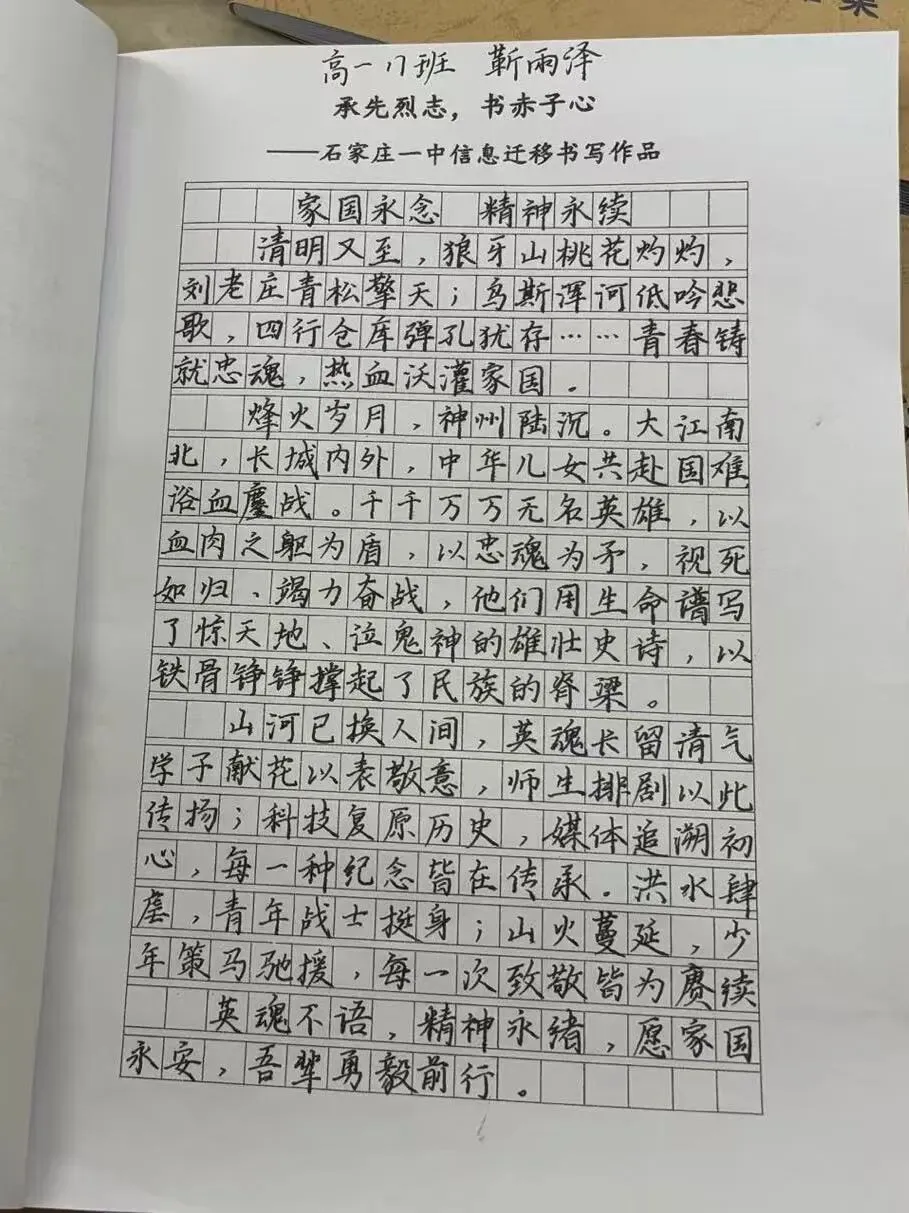 集
高一17班 靳雨泽
承先烈志，书赤子心
——石家庄一中信息迁移书写作品
家国永念 精神永续
清明又至，狼牙山桃花灼灼，
刘老庄青松擎天；乌斯浑河低吟悲
歌，四行仓库弹孔犹存……青春铸
就忠魂，热血沃灌家国.
烽火岁月，神州陆沉。大江南
北，长城内外，中华儿女共赴国难
浴血鏖战。千千万万无名英雄，以
血肉之躯为盾，以忠魂为矛，视死
如归、竭力奋战，他们用生命谱写
了惊天地、泣鬼神的雄壮史诗，以
铁骨铮铮撑起了民族的脊梁。
山河已换人间，英魂长留清气
学子献花以表敬意，师生排剧以此
传扬；科技复原历史，媒体追溯初
心，每一种纪念皆在传承.洪水肆
虐，青年战士挺身；山火蔓延，少
年策马驰援，每一次致敬皆为赓续
英魂不语，精神永绪，愿家国
永安，吾辈勇毅前行。